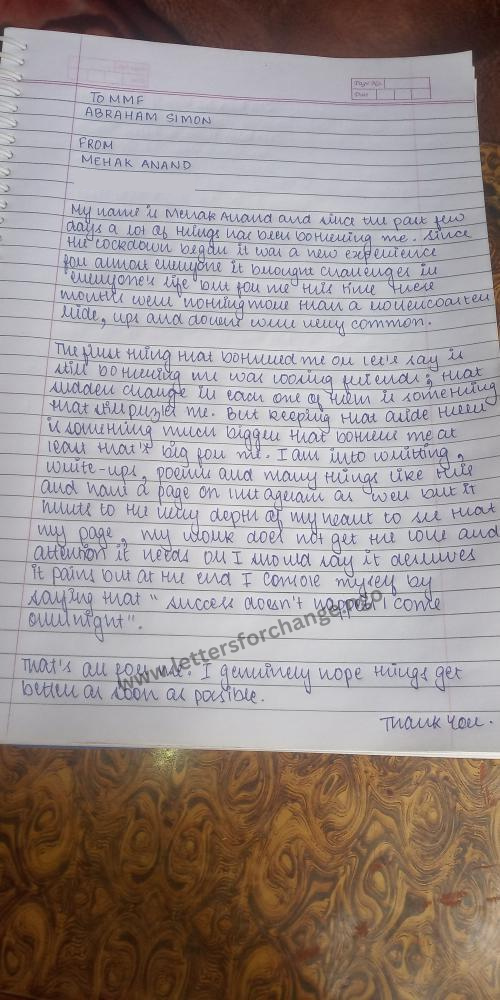 Page No.
Date
TO MMF
ABRAHAM SIMON
FROM
MEHAK ANAND
My name is Mehak Anand and since the past few
days a lot of things has been bothering me. Since
the lockdown began it was a new experience
for almost everyone it brought challenges in
everyone's life but for me this time these
months were nothing more than a rollercoaster
ride, ups and downs were very common.
The first thing that bothered me or let's say is
still bothering me was losing friends, that
sudden change in each one of them is something
that still puzzles me. But keeping that aside there
is something much bigger that bothers me at
least that's big for me. I am into writting,
write-ups, poems and many things like this
and have a page on instagram as well but it
hurts to the very depth of my heart to see that
my page, my work does not get the love and
attention it needs or I should say it deserves
it pains but at the end I console myself by
saying that " success doesn't happen / come
overnight".
That's all for me. I genuinely hope things get
better as soon as possible.
Thank You.
www.lettersforchange.org